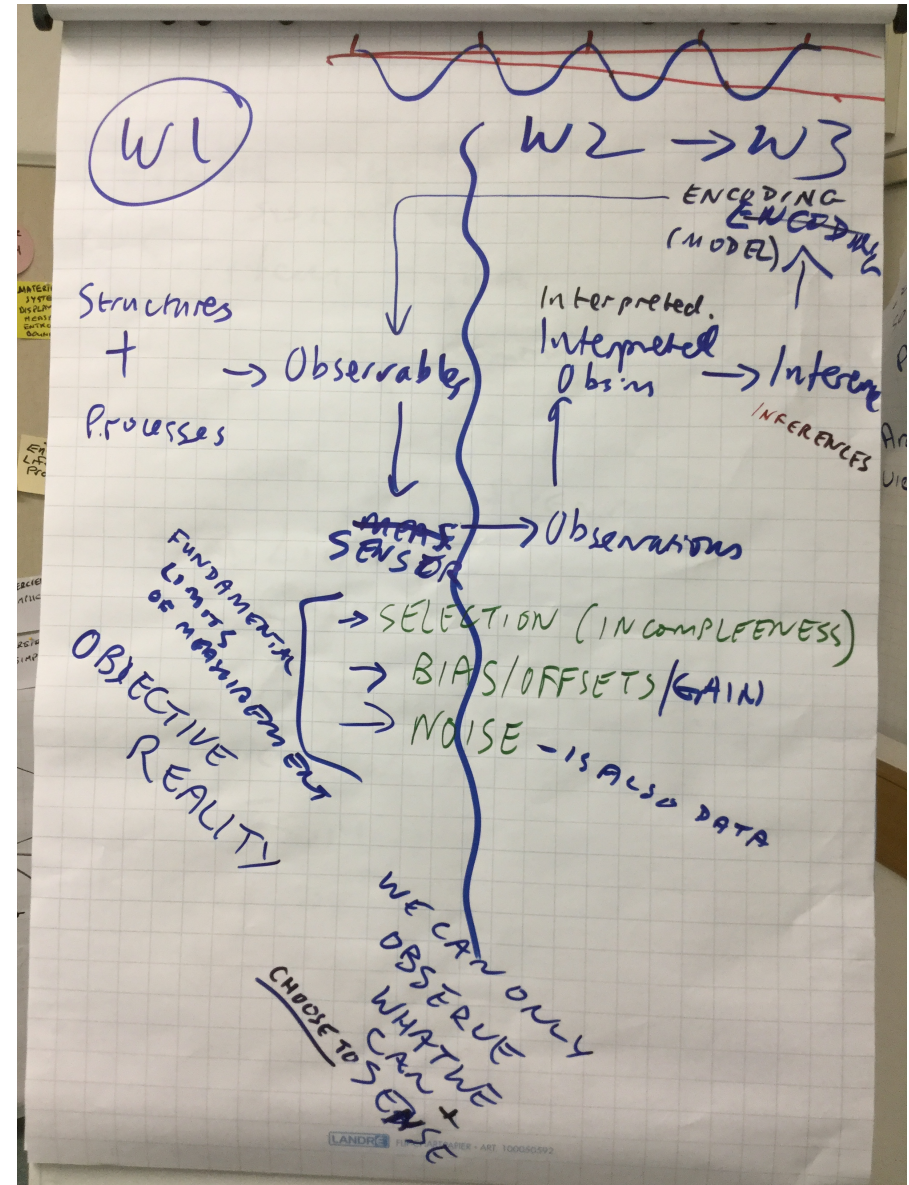 W1
W2 → W3
ENCODING
ENCODING
(MODEL)
Structures
+
Processes
→ Observables
Interpreted.
Interpreted
Obsins
→ Inference
INFERENCES
MEAS
SENSOR
→ Observations
FUNDAMENTAL
LIMITS
OF MEASUREMENT
→ SELECTION (INCOMPLEENESS)
→ BIAS/OFFSETS/GAIN)
→ NOISE - IS ALSO DATA
OBJECTIVE
REALITY
WE CAN ONLY
OBSERVE
WHAT WE
CAN +
CHOOSE TO
SENSE
LANDRÉ
ART. 100050592